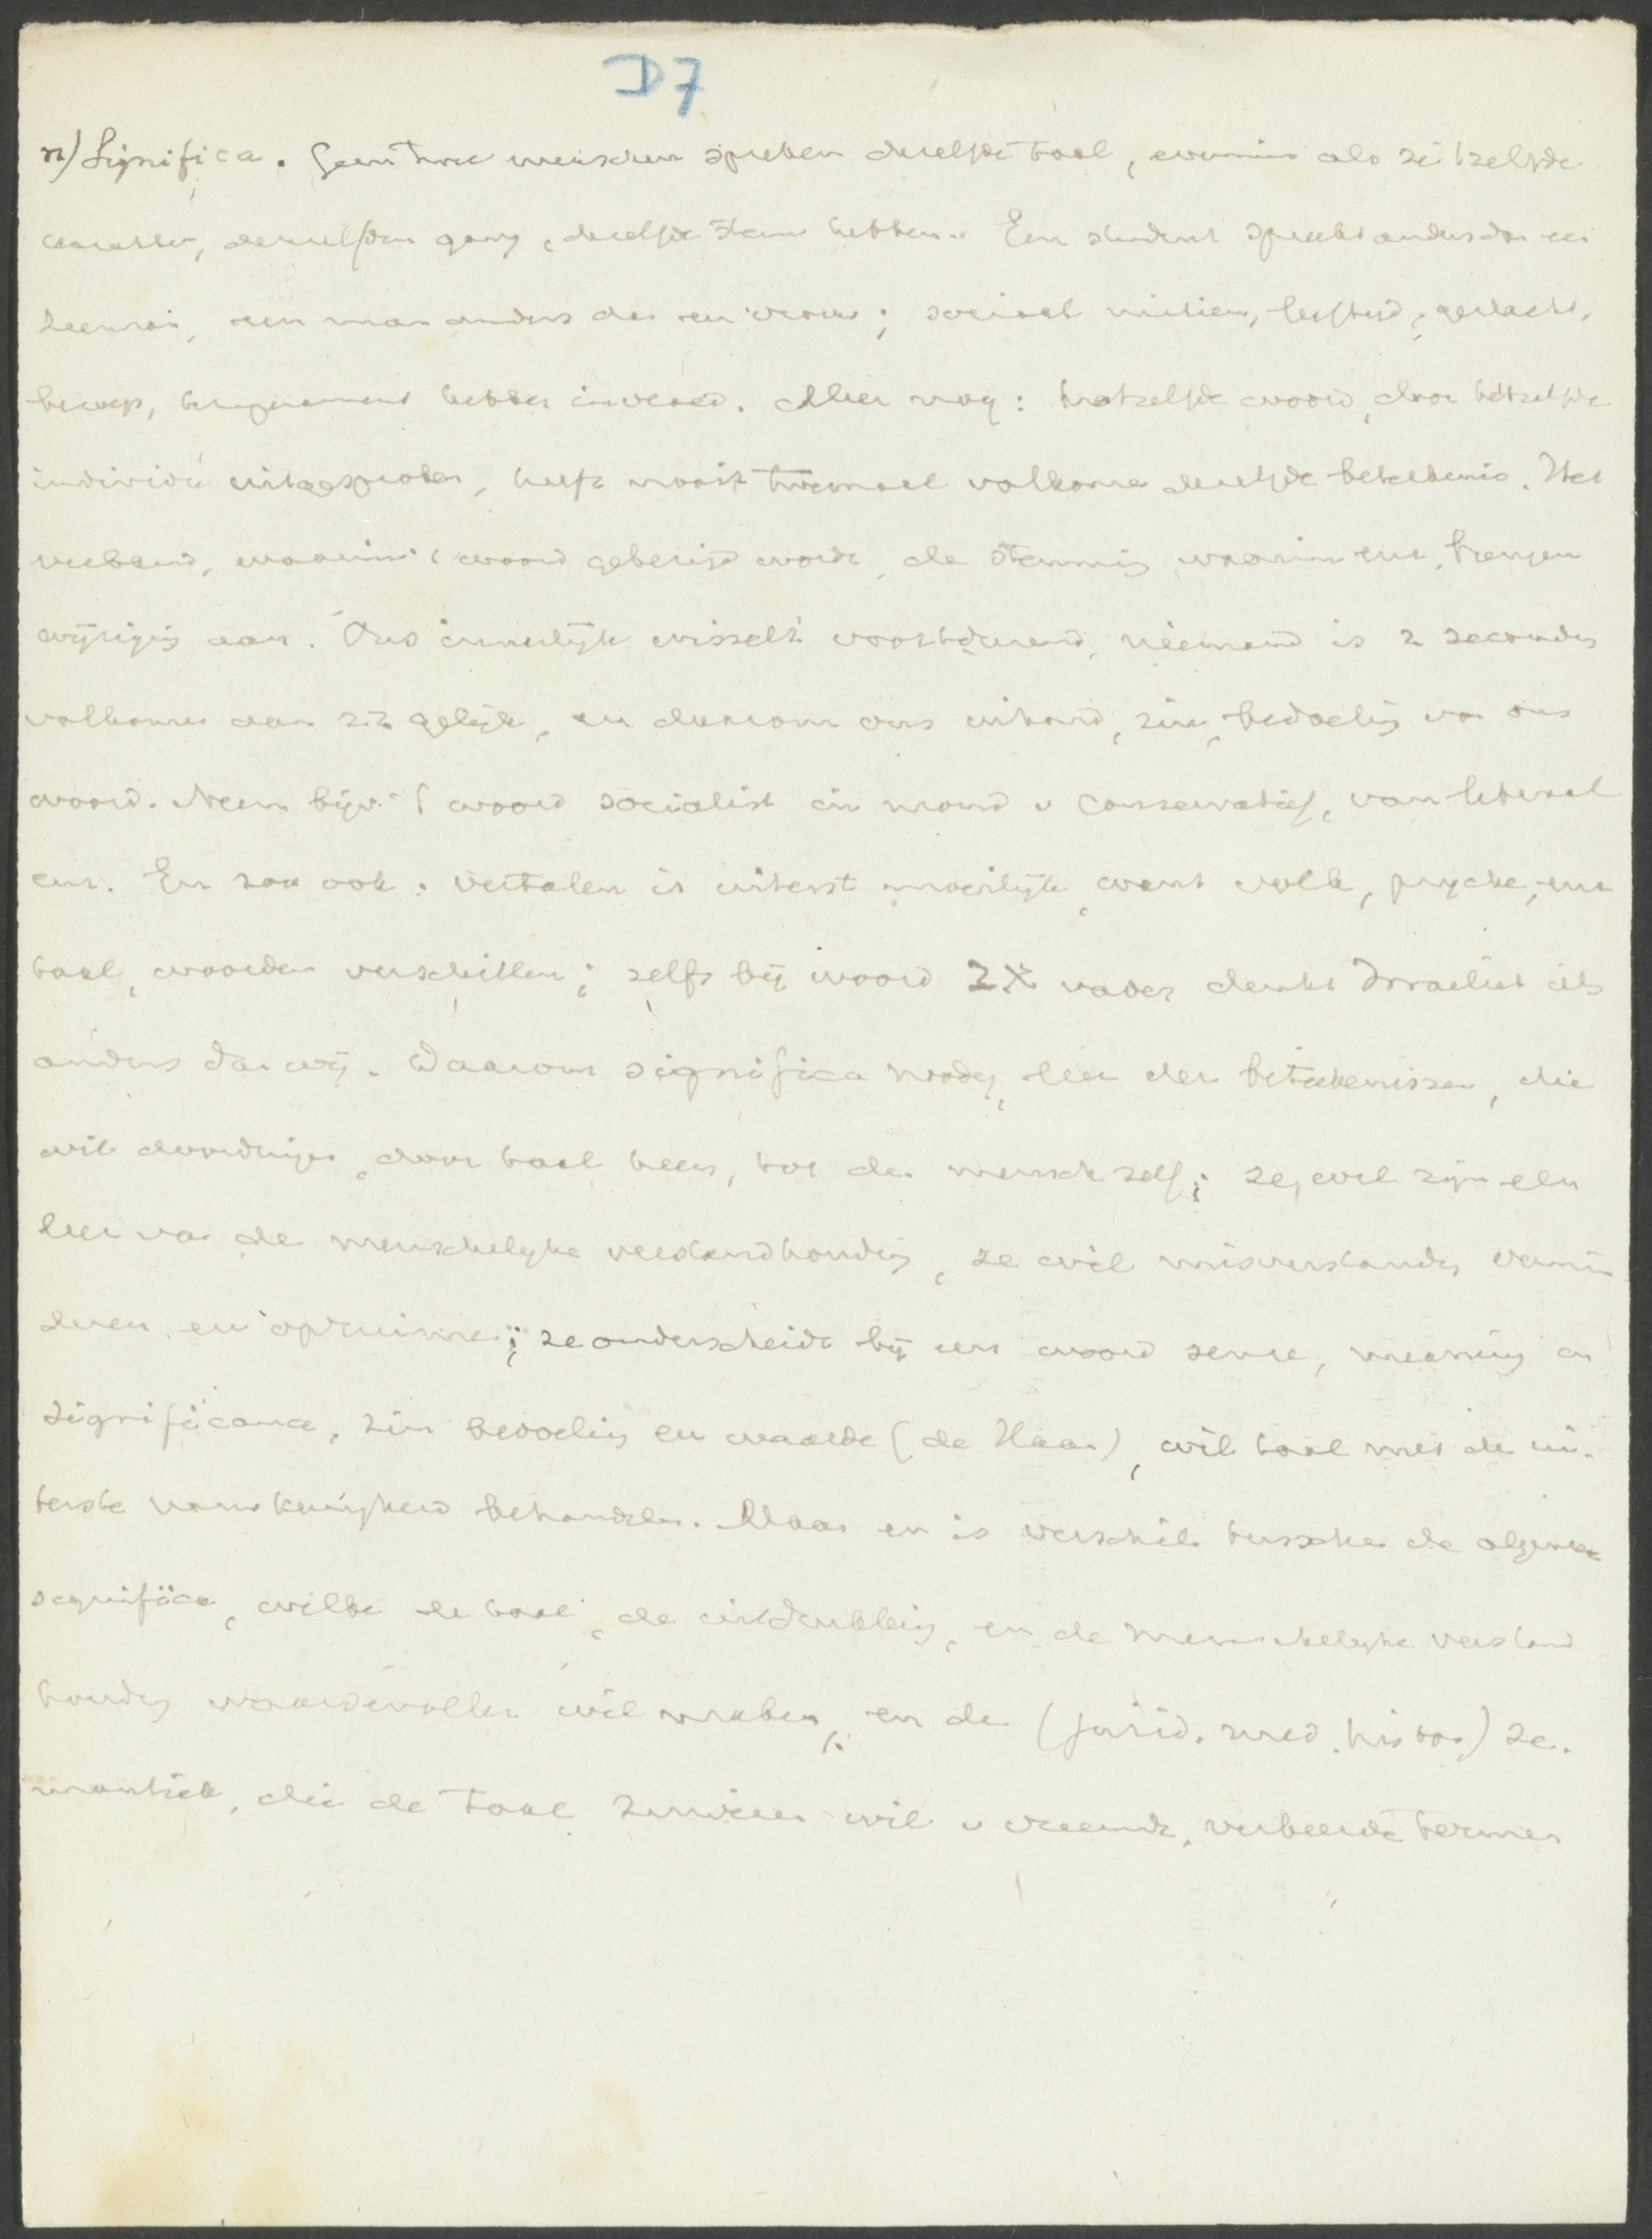 D7
n) Significa. Geen twee menschen spreken dezelfde taal, evenmin als ze 't zelfde
karakter, denzelfden gang, dezelfde stem hebben. Een student spreekt anders dan een
zeeman, een man anders dan een vrouw; sociaal milieu, leeftijd, geslacht,
beroep, temperament hebben invloed. Meer nog: hetzelfde woord, door hetzelfde
individu uitgesproken, heeft nooit tweemaal volkomen dezelfde beteekenis. Het
verband, waarin 't woord gebruikt wordt, de stemming waarin enz. brengen
wijziging aan. Ons innerlijk wisselt voortdurend, niemand is 2 seconden
volkomen aan zich gelijk, en daarom ons inhoud, zin, bedoeling van ons
woord. Neem bijv. 't woord socialist in mond v conservatief, van liberaal
enz. En zoo ook: vertalen is uiterst moeilijk want volk, psyche, enz
taal, woorden verschillen; zelfs bij woord vader denkt Israeliet iets
anders dan wij. Daarom significa noodig, leer der beteekenissen, die
wil doordringen, door taal heen, tot den mensch zelf; ze wil zijn een
leer van de menschelijke verstandhouding, ze wil misverstanden vermin
deren en opruimen; ze onderscheidt bij een woord sense, meaning en
significance, zin bedoeling en waarde (de Haan), wil taal met de ui-
terste nauwkeurigheid behandelen. Maar er is verschil tusschen de algemeene
significa, welke de taal, de uitdrukking, en de menschelijke verstand
houding waardevoller wil maken, en de (jurid. med. histor) se-
mantiek, die de taal zuiveren wil v vreemde, verkeerde termen